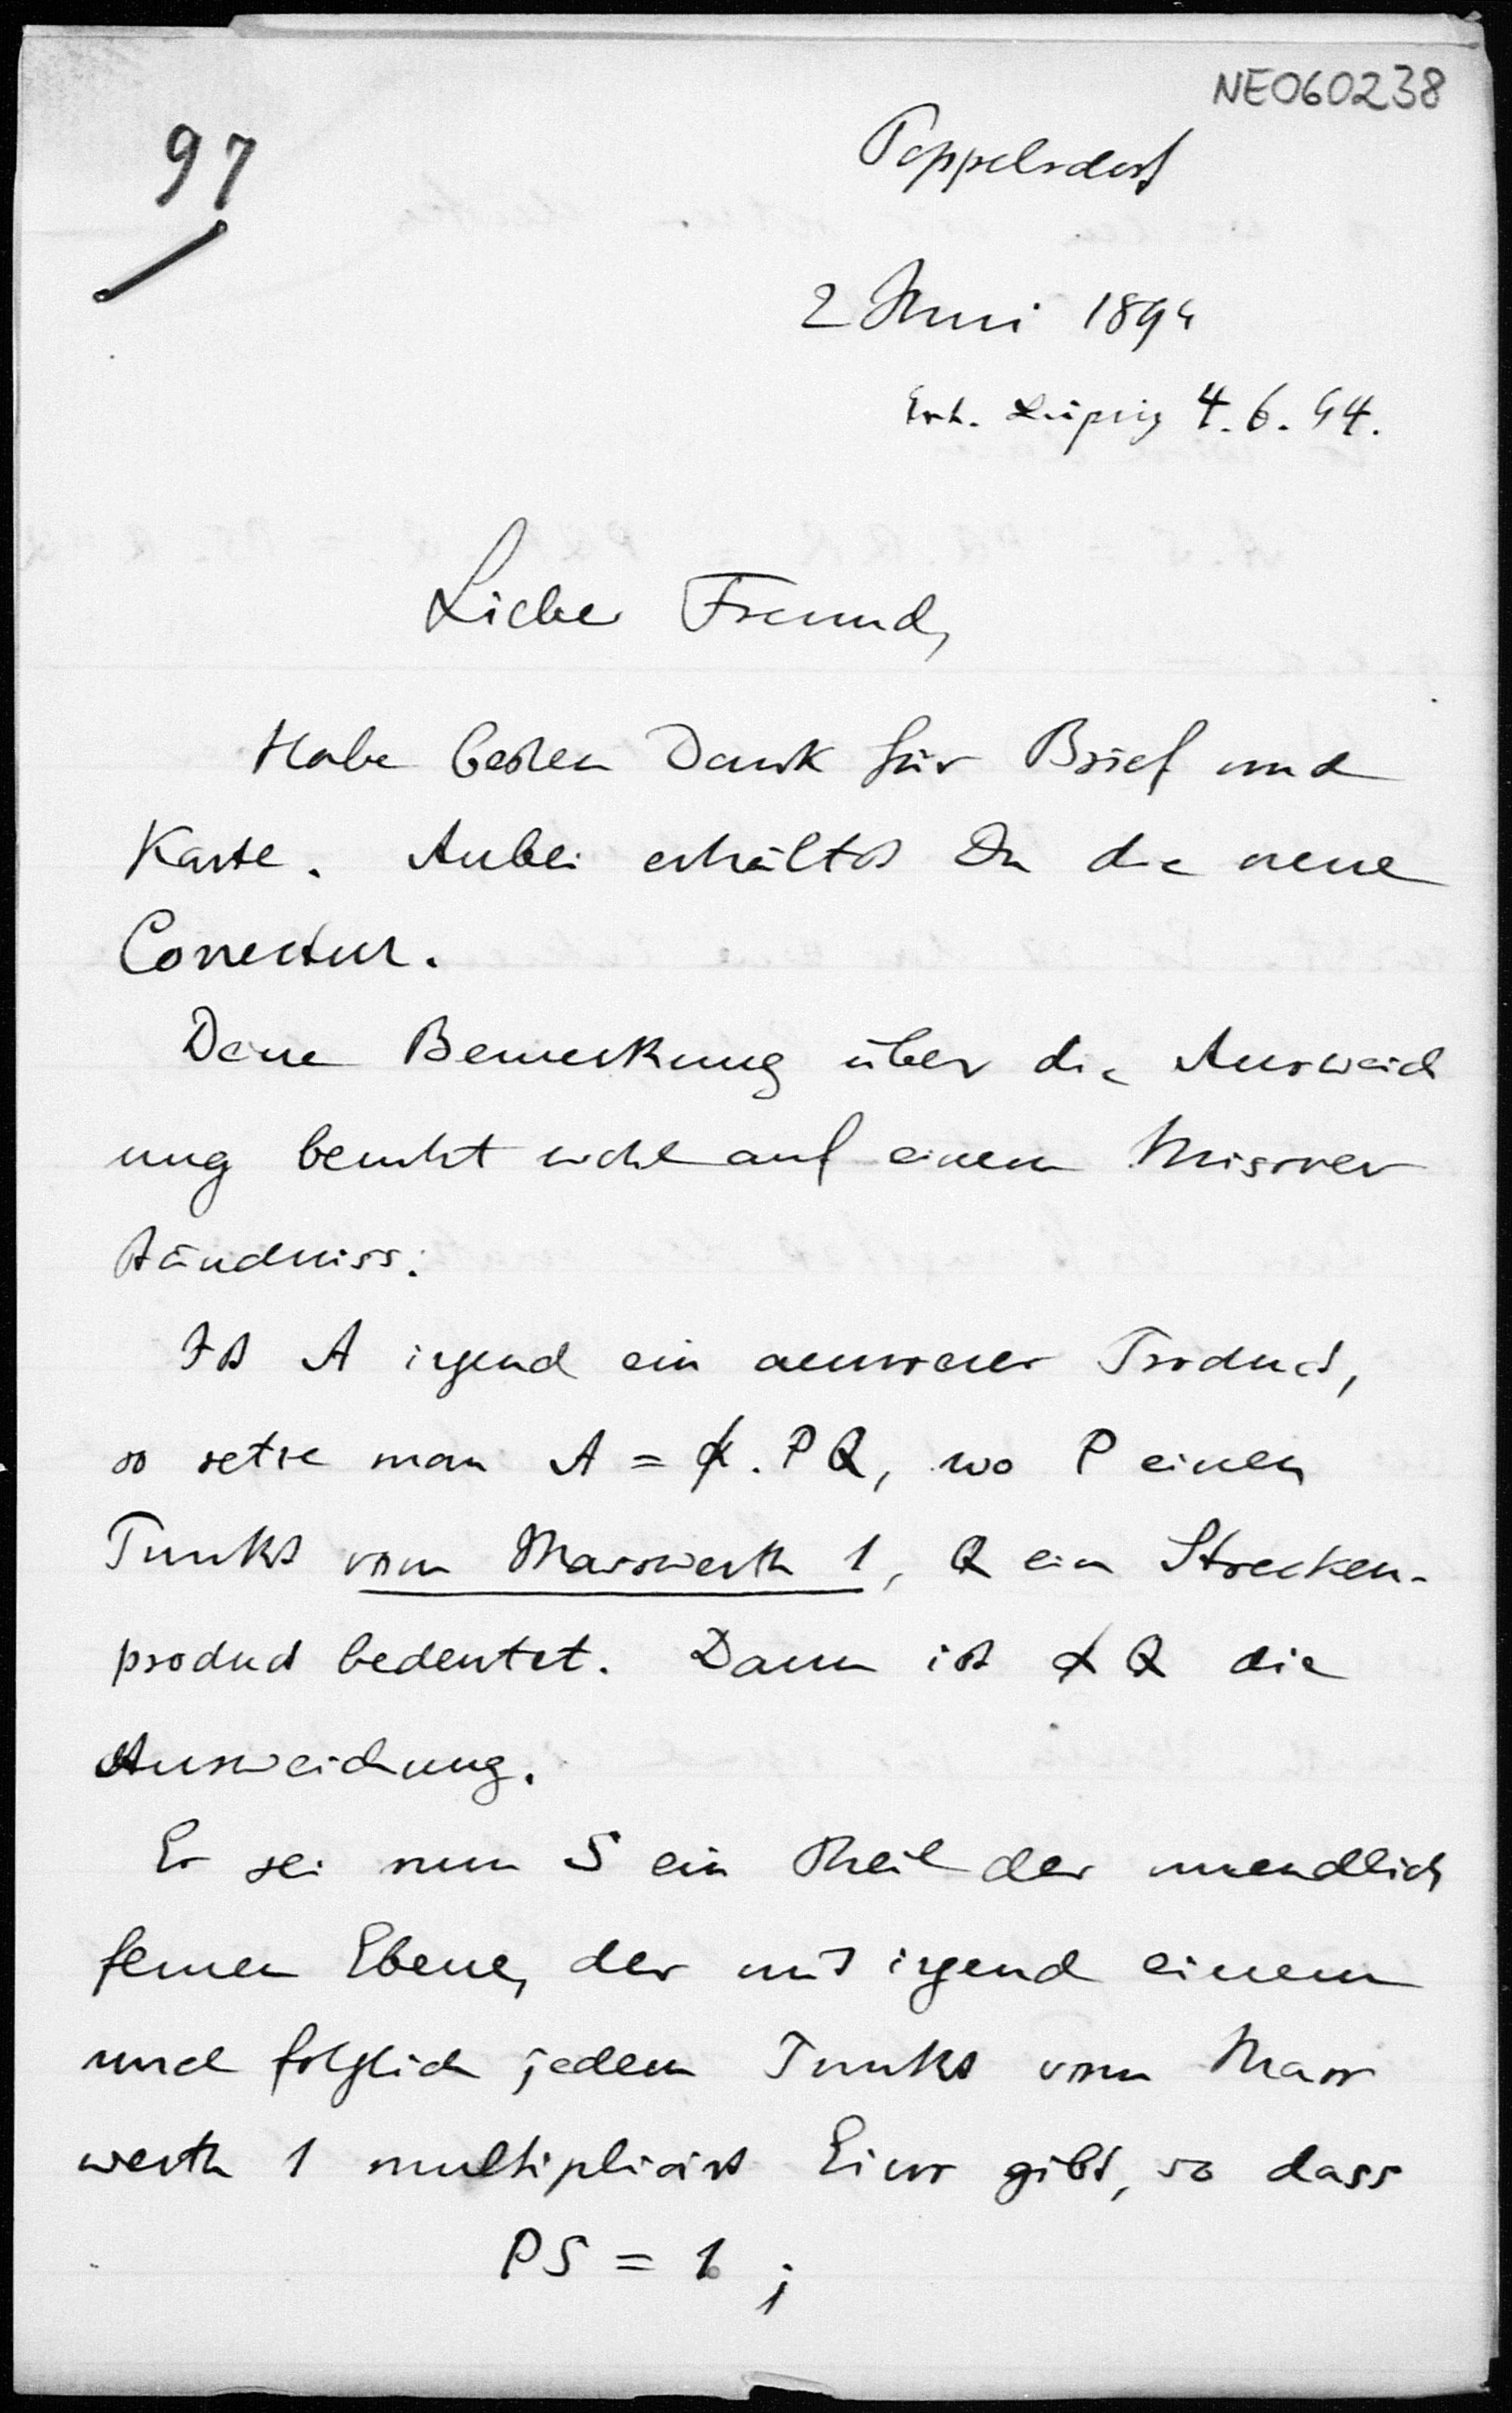 NE060238
97
Poppelsdorf
2 Juni 1894
Erh. Leipzig 4.6.94.
Lieber Freund,
Habe besten Dank für Brief und
Karte. Anbei erhältst Du die neue
Correctur.
Deine Bemerkung über die Ausweich
ung beruht wohl auf einem Missver
ständniss:
Ist A irgend ein aeusseres Product,
so setze man A = α. PQ, wo P einen
Punkt vom Masswerth 1, Q ein Strecken-
product bedeutet. Dann ist αQ die
Ausweichung.
Es sei nun S ein Theil der unendlich
fernen Ebene, der mit irgend einem
und folglich jedem Punkt vom Mass
werth 1 multiplicirt Eins gibt, so dass
PS = 1 ;